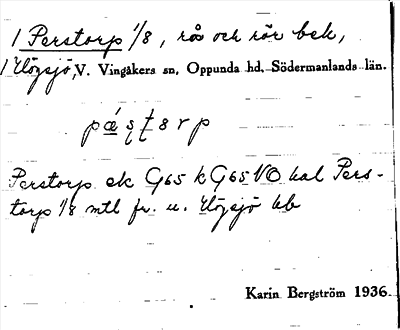 1 Perstorp 1/8, rås och rör bek,
1 Högsjö, V. Vingåkers sn, Oppunda hd, Södermanlands län.
Perstorp ek G65 k G65 NO kal Pers-
torp 1/8 mtl fr. u. Högsjö bb
Karin Bergström 1936.